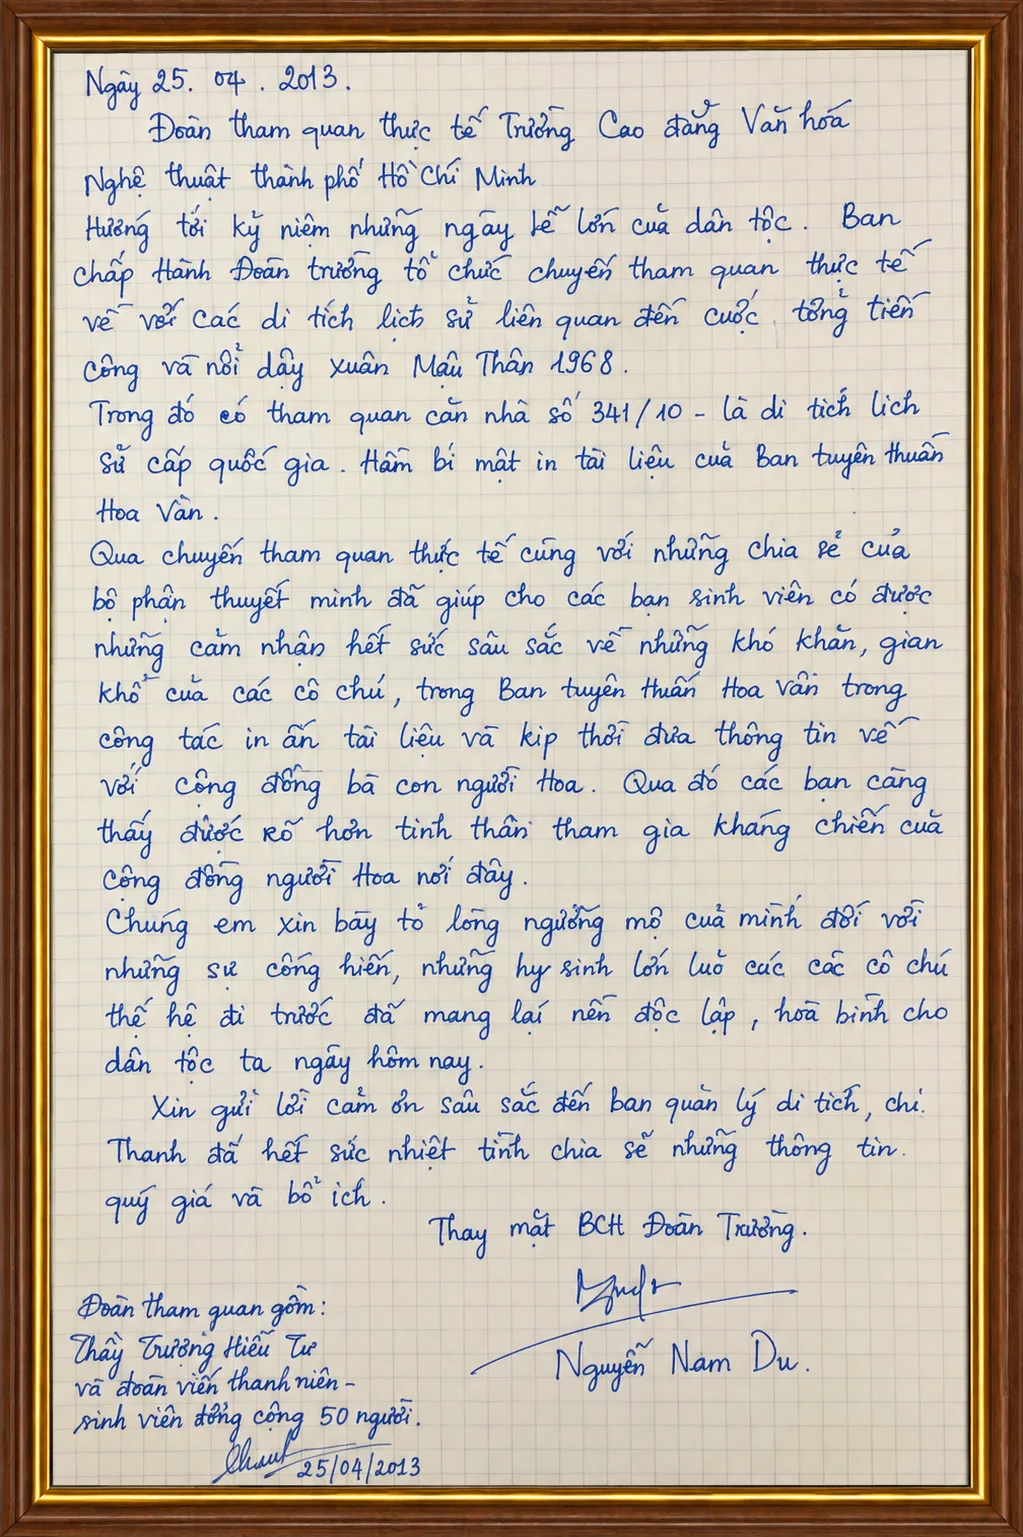 Ngày 25. 04. 2013.
Đoàn tham quan thực tế Trường Cao đẳng Văn hóa
Nghệ thuật thành phố Hồ Chí Minh
Hướng tới kỷ niệm những ngày lễ lớn của dân tộc. Ban
chấp Hành Đoàn trường tổ chức chuyến tham quan thực tế
về với các di tích lịch sử liên quan đến cuộc tổng tiến
công và nổi dậy xuân Mậu Thân 1968.
Trong đó có tham quan căn nhà số 341/10 - là di tích lịch
sử cấp quốc gia. Hầm bí mật in tài liệu của Ban tuyên huấn
Hoa Vận.
Qua chuyến tham quan thực tế cùng với những chia sẻ của
bộ phận thuyết minh đã giúp cho các bạn sinh viên có được
những cảm nhận hết sức sâu sắc về những khó khăn, gian
khổ của các cô chú, trong Ban tuyên huấn Hoa Vận trong
công tác in ấn tài liệu và kịp thời đưa thông tin về
với cộng đồng bà con người Hoa. Qua đó các bạn càng
thấy được rõ hơn tinh thần tham gia kháng chiến của
cộng đồng người Hoa nơi đây.
Chúng em xin bày tỏ lòng ngưỡng mộ của mình đối với
những sự cống hiến, những hy sinh lớn các cô chú
thế hệ đi trước đã mang lại nền độc lập, hòa bình cho
dân tộc ta ngày hôm nay.
Xin gửi lời cảm ơn sâu sắc đến ban quản lý di tích, chị.
Thanh đã hết sức nhiệt tình chia sẻ những thông tin.
quý giá và bổ ích.
Thay mặt BCH Đoàn Trường.
Nguyễn Nam Du.
Đoàn tham quan gồm:
Thầy Trương Hiếu Tư
và đoàn viên thanh niên -
sinh viên đồng cộng 50 người.
25/04/2013